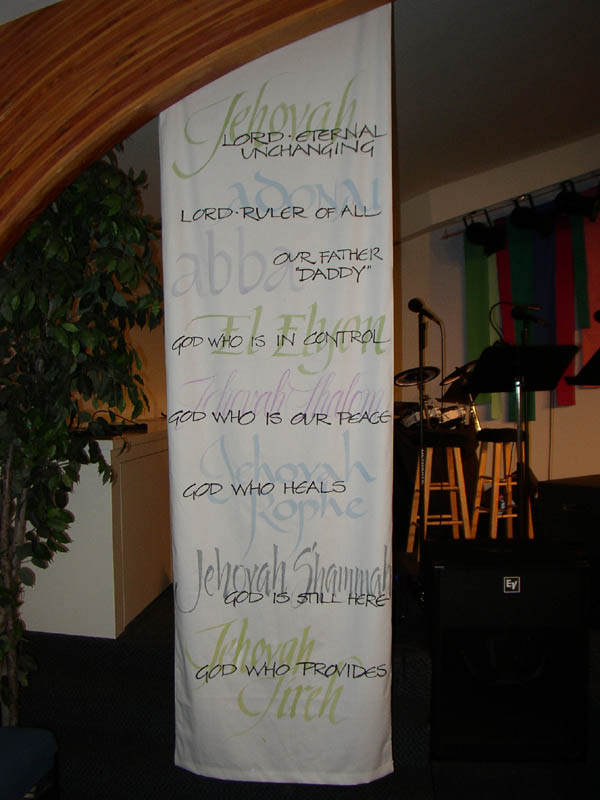 Jehovah
LORD · ETERNAL
UNCHANGING
adonai
LORD · RULER OF ALL
abba
OUR FATHER
"DADDY"
El Elyon
GOD WHO IS IN CONTROL
Jehovah Shalom
GOD WHO IS OUR PEACE
Jehovah
Rophe
GOD WHO HEALS
Jehovah Shammah
GOD IS STILL HERE
Jehovah
GOD WHO PROVIDES
Jireh
EV